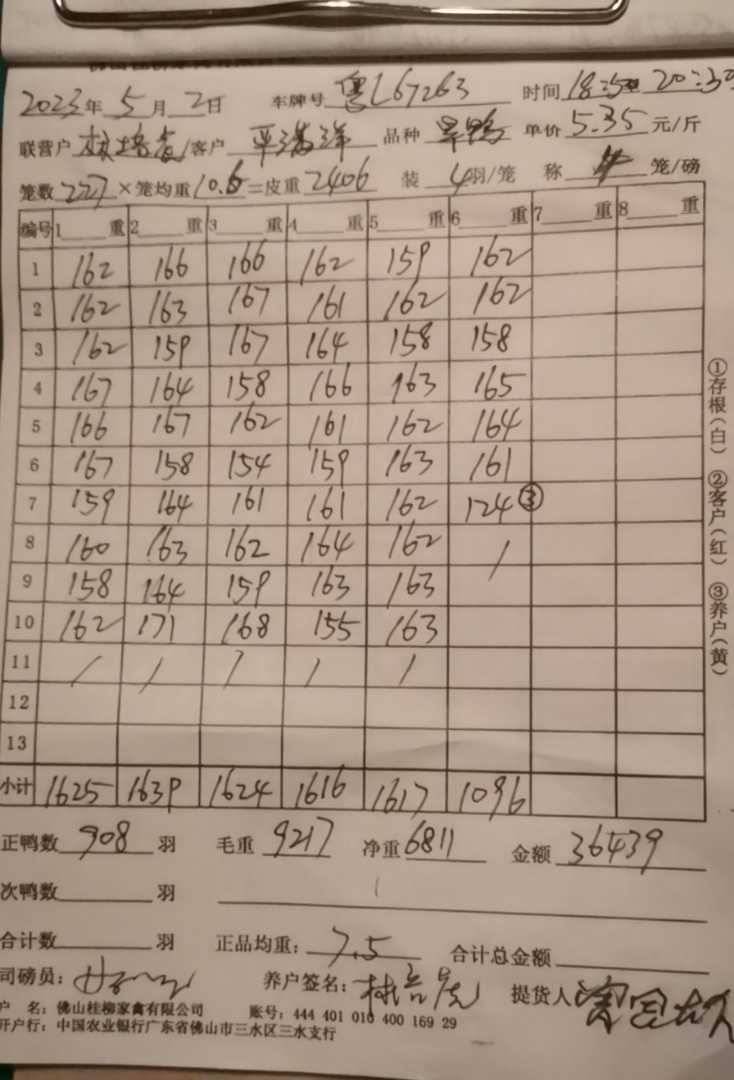 2023年 5月 2日 车牌号 粤L67263 时间 18:50 20:30
联营户 客户 平满洋 品种 旱鸭 单价 5.35 元/斤
笼数 227 ×笼均重 10.6 =皮重 2406 装 4羽/笼 称 4 笼/磅
编号 1 重 2 重 3 重 4 重 5 重 6 重 7 重 8 重
1 162 166 166 162 159 162
2 162 163 167 161 162 162
3 162 159 167 164 158 158
4 167 164 158 166 163 165
5 166 167 162 161 162 164
6 167 158 154 159 163 161
7 159 164 161 161 162 124 ③
8 160 163 162 164 162 /
9 158 164 159 163 163
10 162 171 168 155 163
11 / / / / /
12
13
小计 1625 1639 1624 1616 1617 1096
正鸭数 908 羽 毛重 9217 净重 6811 金额 36439
次鸭数 羽
合计数 羽 正品均重: 7.5 合计总金额
司磅员: 养户签名: 提货人
户 名: 佛山桂柳家禽有限公司 账号: 444 401 010 400 169 29
开户行: 中国农业银行广东省佛山市三水区三水支行
①存根(白) ②客户(红) ③养户(黄)